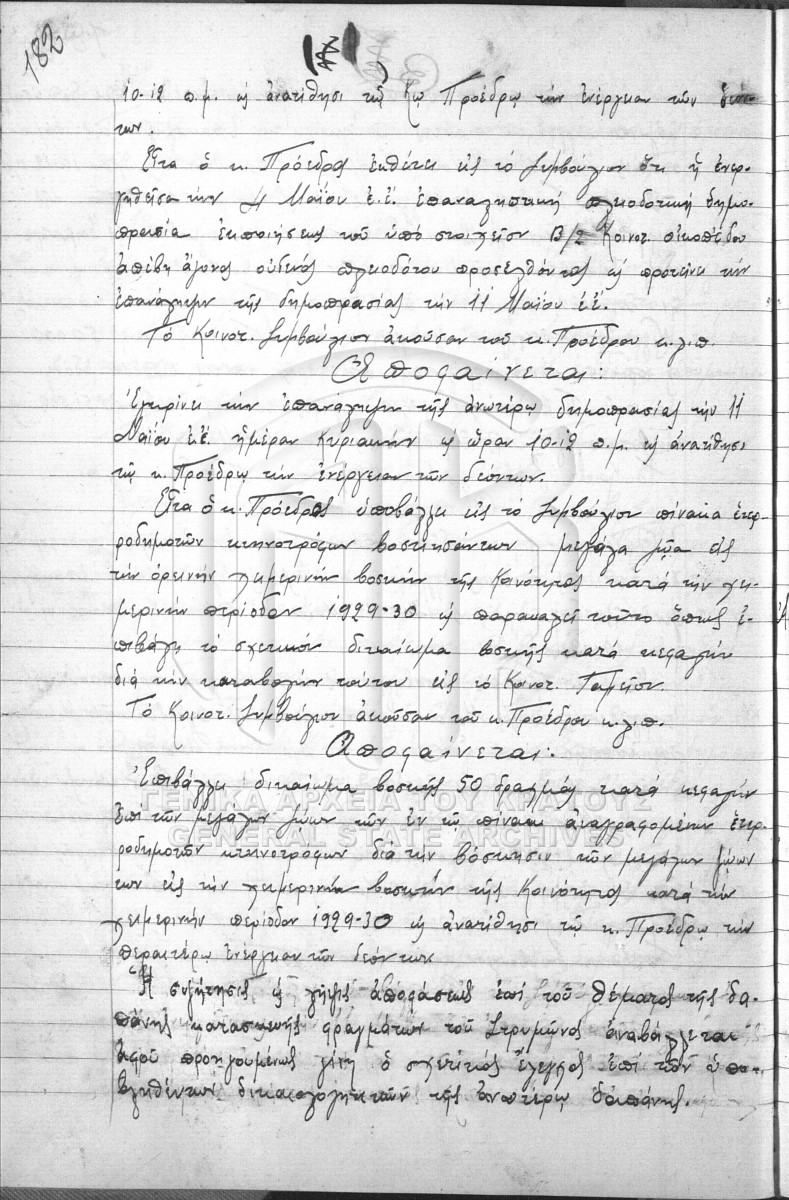 182
10-12 π.μ. ϗ ἀνατίθησι τῷ κῳ Προέδρῳ τὴν ἐνέργειαν τῶν δεόν-
των.
Εἶτα ὁ κ. Πρόεδρος ἐκθέτει εἰς τὸ Συμβούλιον ὅτι ἡ ἐνερ-
γηθεῖσα τὴν 4 Μαΐου ἐ.ἔ. ἐπαναληπτικὴ πλειοδοτικὴ δημο-
πρασία ἐκποιήσεως τοῦ ὑπὸ στοιχεῖον B/2 Κοινοτ. οἰκοπέδου
ἀπέβη ἄγονος οὐδενὸς πλειοδότου προσελθόντος ϗ προτείνει τὴν
ἐπανάληψιν τῆς δημοπρασίας τὴν 11 Μαΐου ἐ.ἔ.
Τὸ Κοινοτ. Συμβούλιον ἀκοῦσαν τοῦ κ. Προέδρου κ.λ.π.
Ἀποφαίνεται:
Ἐγκρίνει τὴν ἐπανάληψιν τῆς ἀνωτέρω δημοπρασίας τὴν 11
Μαΐου ἐ.ἔ. ἡμέραν Κυριακὴν ϗ ὥραν 10-12 π.μ. ϗ ἀνατίθησι
τῷ κ. Προέδρῳ τὴν ἐνέργειαν τῶν δεόντων.
Εἶτα ὁ κ. Πρόεδρος ὑποβάλλει εἰς τὸ Συμβούλιον πίνακα ἑτε-
ροδημοτῶν κτηνοτρόφων βοσκησάντων μεγάλα ζῶα εἰς
τὴν ὀρεινὴν χειμερινὴν βοσκὴν τῆς Κοινότητος κατὰ τὴν χει-
μερινὴν περίοδον 1929-30 ϗ παρακαλεῖ τοῦτο ὅπως ἐ-
πιβάλῃ τὸ σχετικὸν δικαίωμα βοσκῆς κατὰ κεφαλὴν
διὰ τὴν καταβολὴν τούτου εἰς τὸ Κοινοτ. Ταμεῖον.
Τὸ Κοινοτ. Συμβούλιον ἀκοῦσαν τοῦ κ. Προέδρου κ.λ.π.
Ἀποφαίνεται:
Ἐπιβάλλει δικαίωμα βοσκῆς 50 δραχμὰς κατὰ κεφαλὴν
ΓΕΝΙΚΑ ΑΡΧΕΙΑ ΤΟΥ ΚΡΑΤΟΥΣ
ἐπὶ τῶν μεγάλων ζώων τῶν ἐν τῷ πίνακι ἀναγραφομένων ἑτερ-
GENERAL STATE ARCHIVES
ροδημοτῶν κτηνοτρόφων διὰ τὴν βόσκησιν τῶν μεγάλων ζώων
των εἰς τὴν χειμερινὴν βοσκὴν τῆς Κοινότητος κατὰ τὴν
χειμερινὴν περίοδον 1929-30 ϗ ἀνατίθησι τῷ κ. Προέδρῳ τὴν
περαιτέρω ἐνέργειαν τῶν δεόντων
Ἡ συζήτησις ϗ λῆψις ἀποφάσεως ἐπὶ τοῦ θέματος τῆς δα-
πάνης κατασκευῆς φραγμάτων τοῦ Στρυμῶνος ἀναβάλλεται
ἀφοῦ προηγουμένως γίνῃ ὁ σχετικὸς ἔλεγχος ἐπὶ τῶν ὑπο-
βληθέντων δικαιολογητικῶν τῆς ἀνωτέρω δαπάνης.